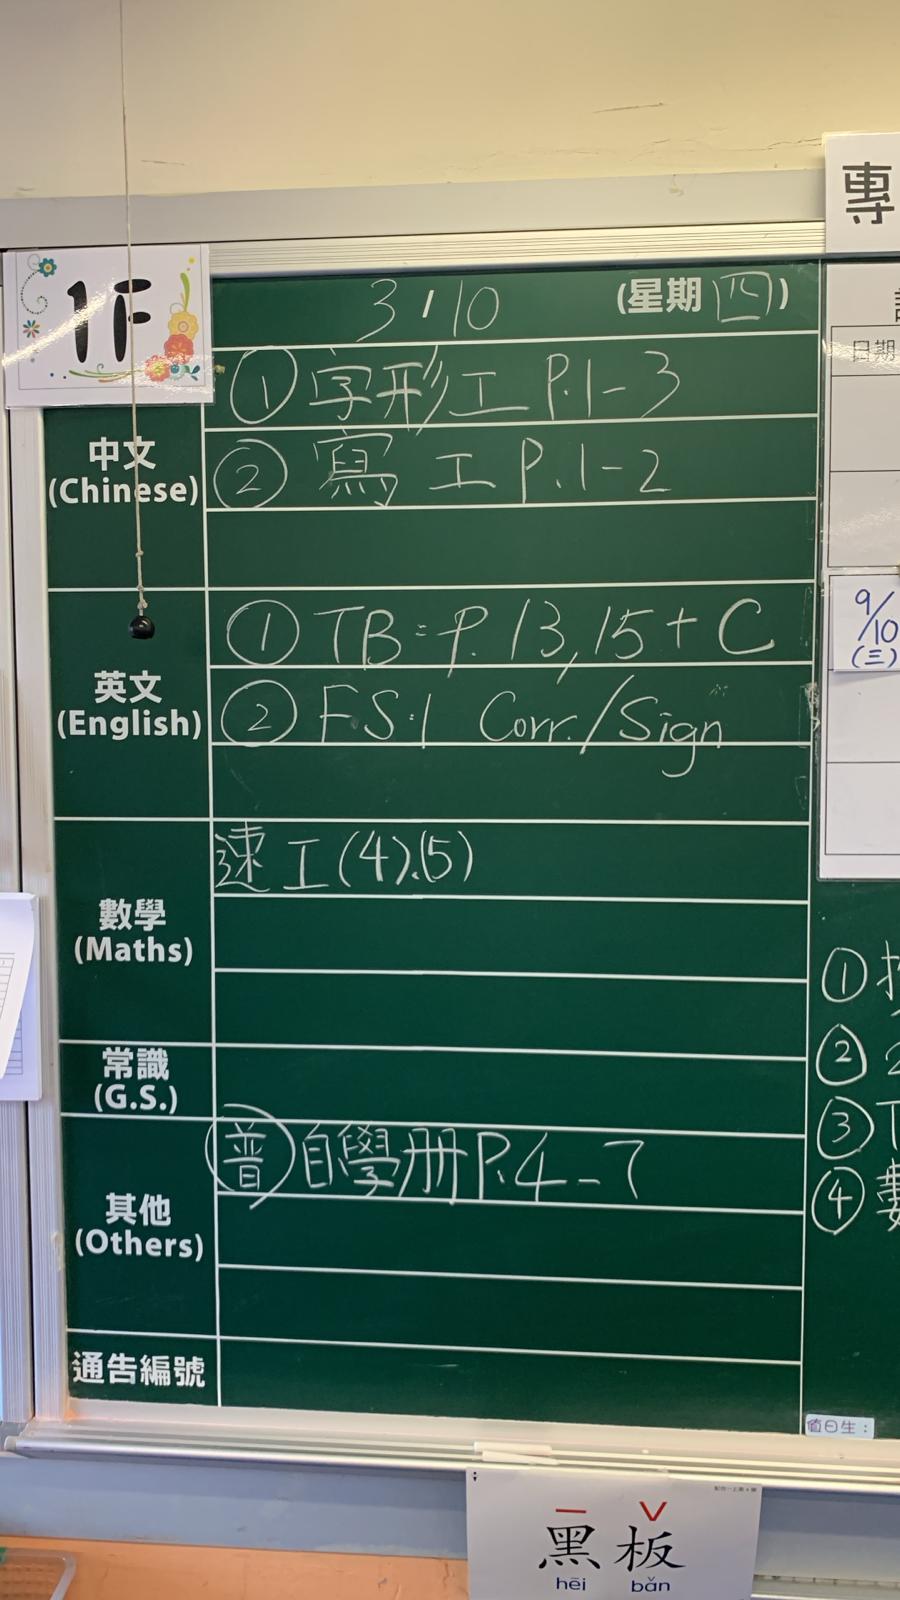 專
1F
3/10 (星期四)
中文
(Chinese)
① 字形工 P.1-3
② 寫工 P.1-2
英文
(English)
① TB: P.13,15 + C
② FS:1 Corr./Sign
數學
(Maths)
速工(4).(5)
常識
(G.S.)
其他
(Others)
普 自學冊P.4-7
通告編號
日期
9/10
(三)
①
②
③ T
④ 數
值日生：
黑板
hēi bǎn